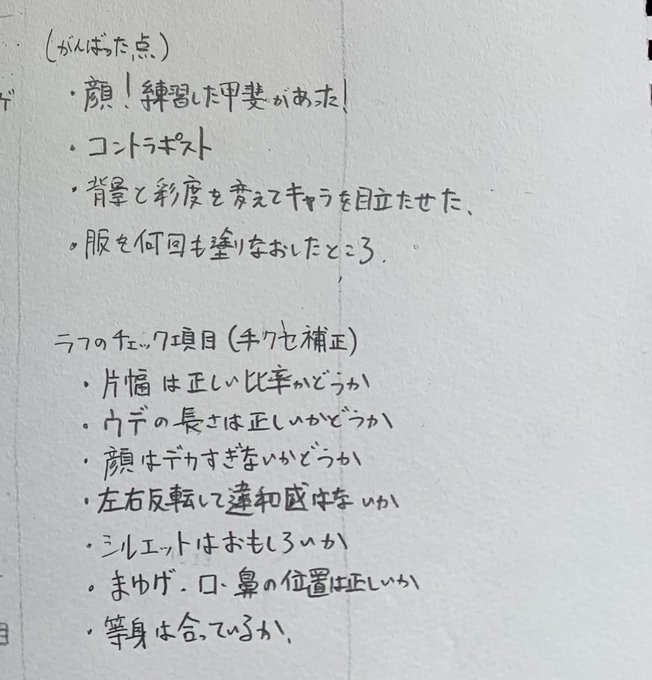 (がんばった点)
・顔!練習した甲斐があった!
・コントラポスト
・背景と彩度を変えてキャラを目立たせた、
・服を何回も塗りなおしたところ.
ラフのチェック項目(手クセ補正)
・片幅は正しい比率かどうか
・ウデの長さは正しいかどうか
・顔はデカすぎないかどうか
・左右反転して違和感はないか
・シルエットはおもしろいか
・まゆげ・口・鼻の位置は正しいか
・等身は合っているか、